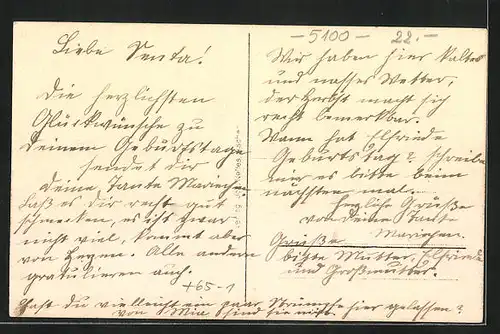 - 5100 -
22.-
Liebe Senta!
Die herzlichsten
Glückwünsche zu
Deinem Geburtstage
sendet dir
deine Tante Mariechen.
Laß es dir recht gut
schmecken, es ist zwar
nicht viel, kommt aber
von Herzen. Alle andern
gratulieren auch.
+65-1
Wir haben hier kaltes
und nasses Wetter,
der Herbst macht sich
recht bemerkbar.
Wann hat Elfriede
Geburtstag? schreibe
mir es bitte beim
nächsten mal.
Herzliche Grüße
von Deiner Tante
Mariechen.
Grüße
bitte Mutter, Elfriede
und Großmutter.
Hast du vielleicht ein paar Strümpfe hier gelassen?
von Mia sind sie nicht.